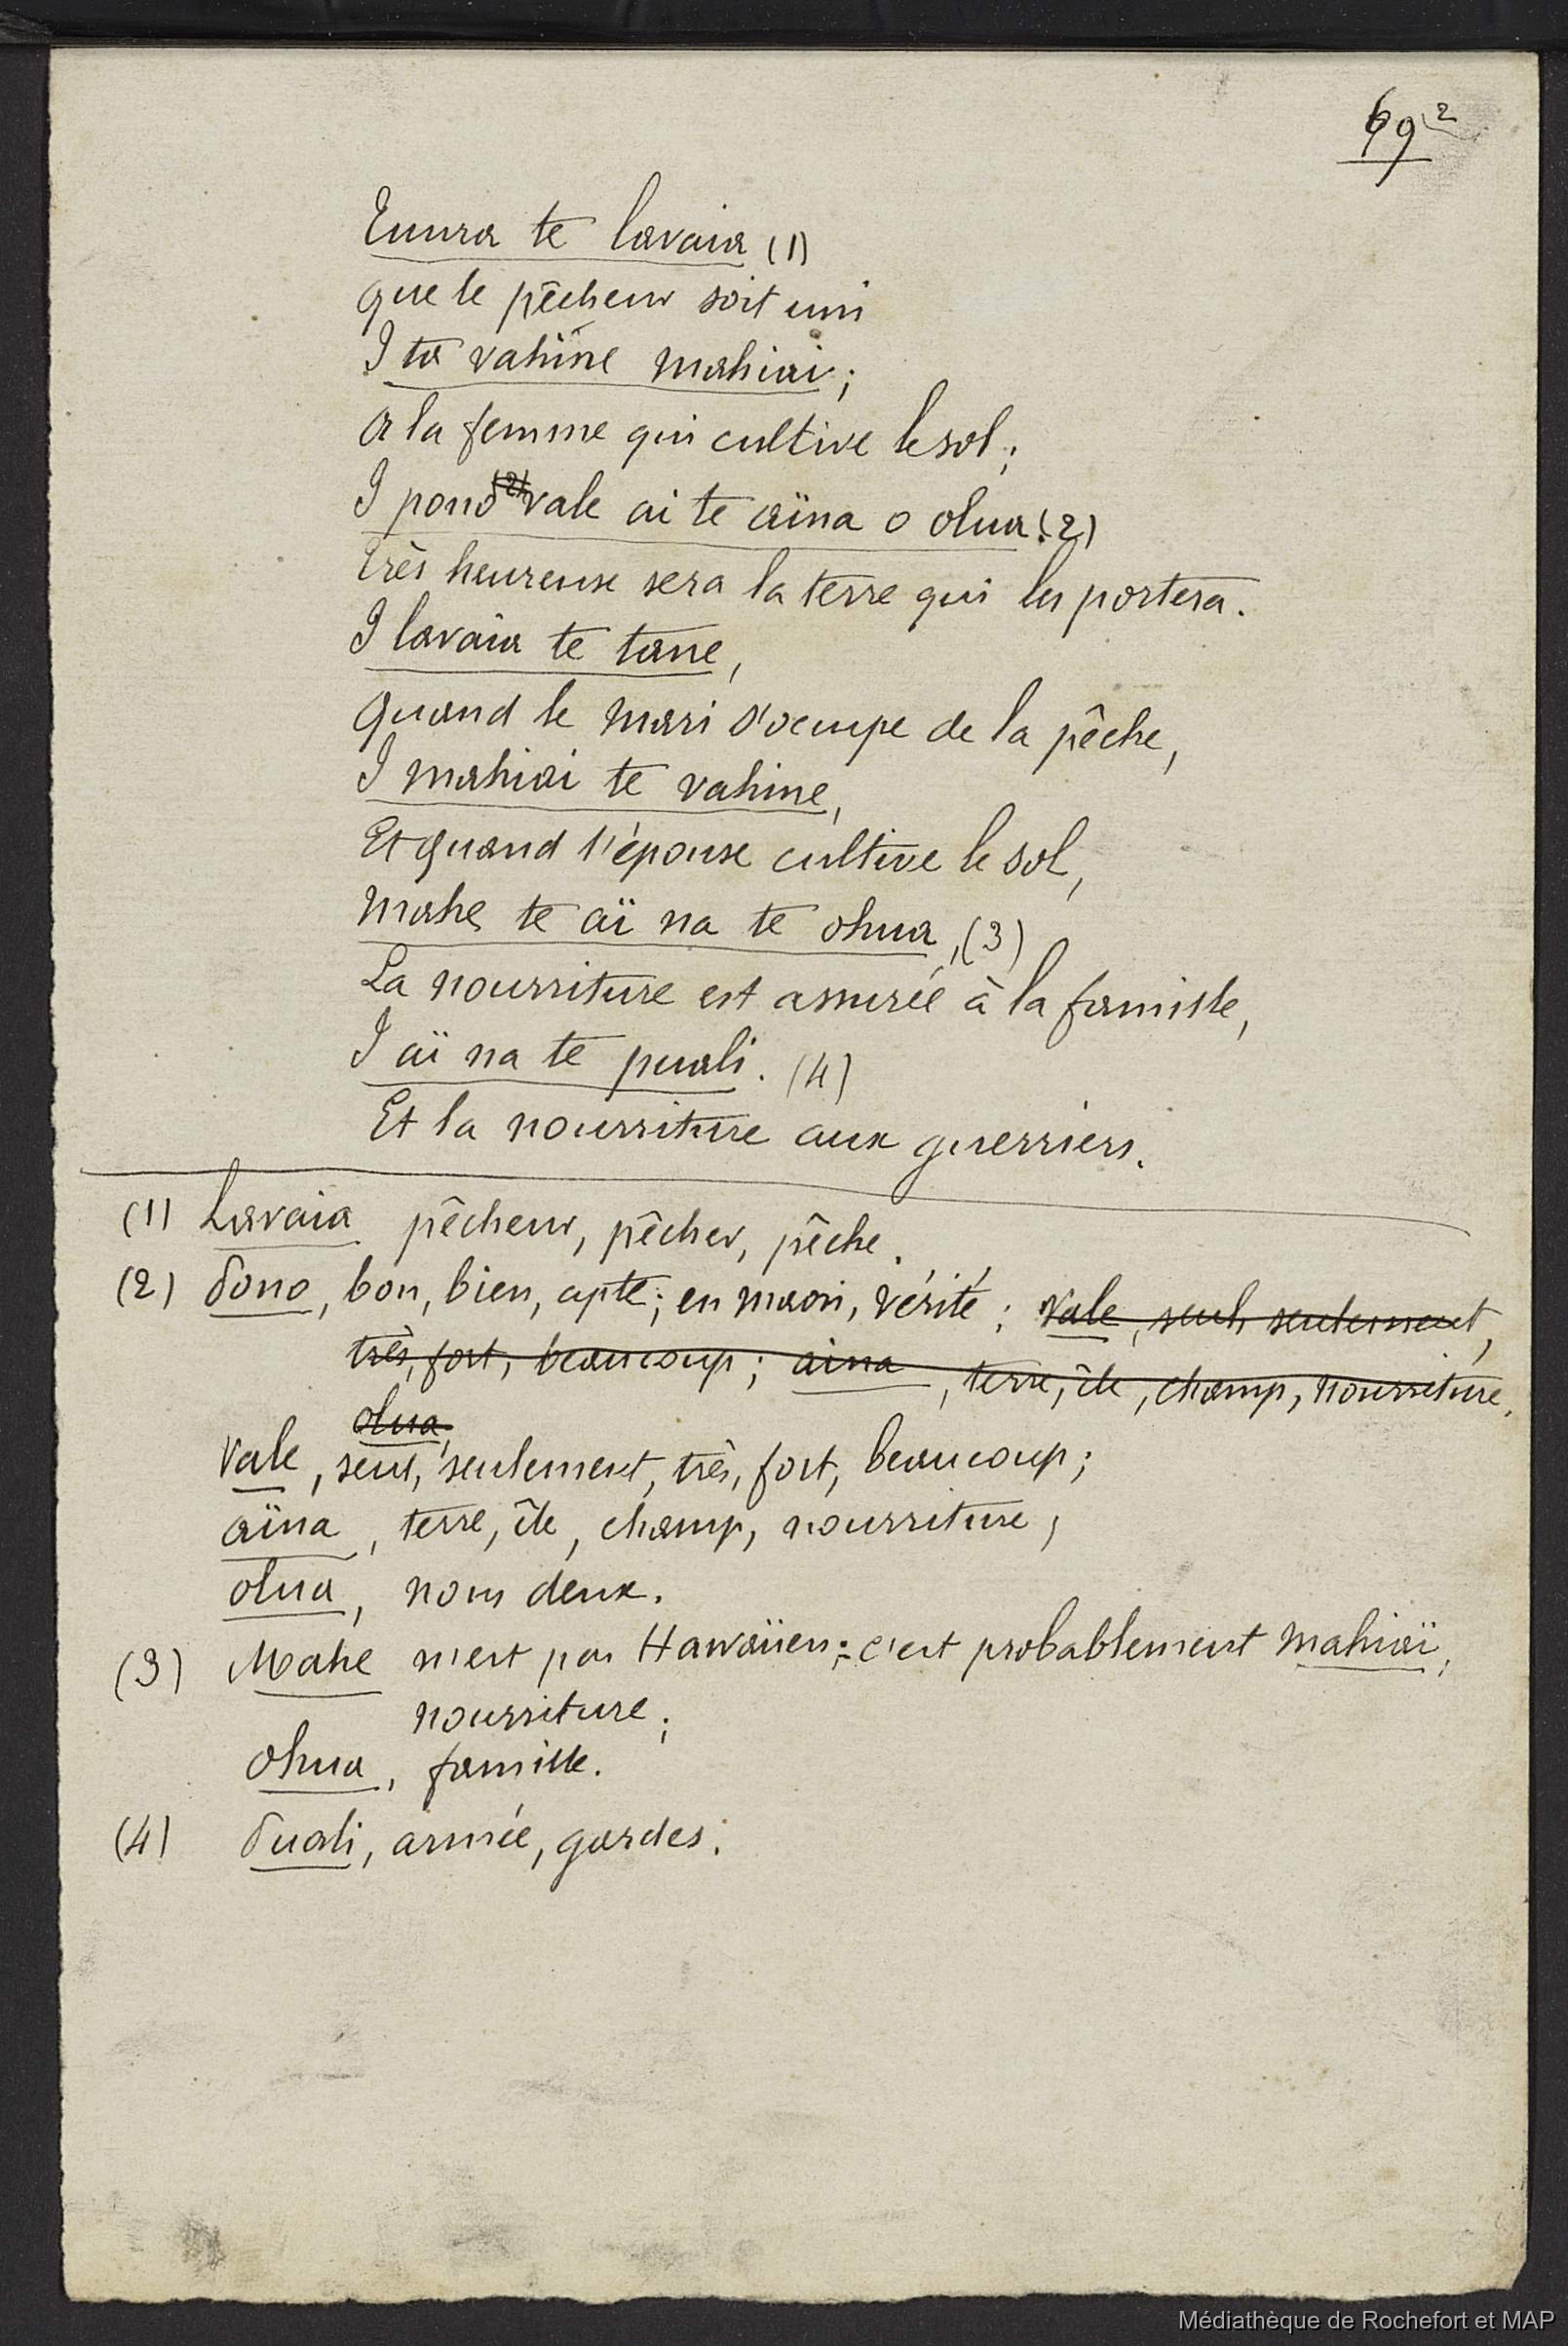 69²
Euura te lavaia (1)
que le pêcheur soit uni
I ta vahine mahiai;
a la femme qui cultive le sol;
I pono (2) vale ai te aïna o olua. (2)
très heureuse sera la terre qui les portera.
I lavaia te tane,
quand le mari s'occupe de la pêche,
I mahiai te vahine,
Et quand l'épouse cultive le sol,
Mahe te aï na te ohua, (3)
La nourriture est assurée à la famille,
I aï na te puali. (4)
Et la nourriture aux guerriers.
(1) Lavaia pêcheur, pêcher, pêche.
(2) Pono, bon, bien, apte; en maori, vérité; vale, seul, seulement,
très, fort, beaucoup; aina, terre, île, champ, nourriture,
olua,
Vale, seul, seulement, très, fort, beaucoup;
aïna, terre, île, champ, nourriture,
olua, nous deux.
(3) Mahe n'est pas Hawaïien; c'est probablement mahiaï,
nourriture;
Ohua, famille.
(4) Puali, armée, gardes.
Médiathèque de Rochefort et MAP